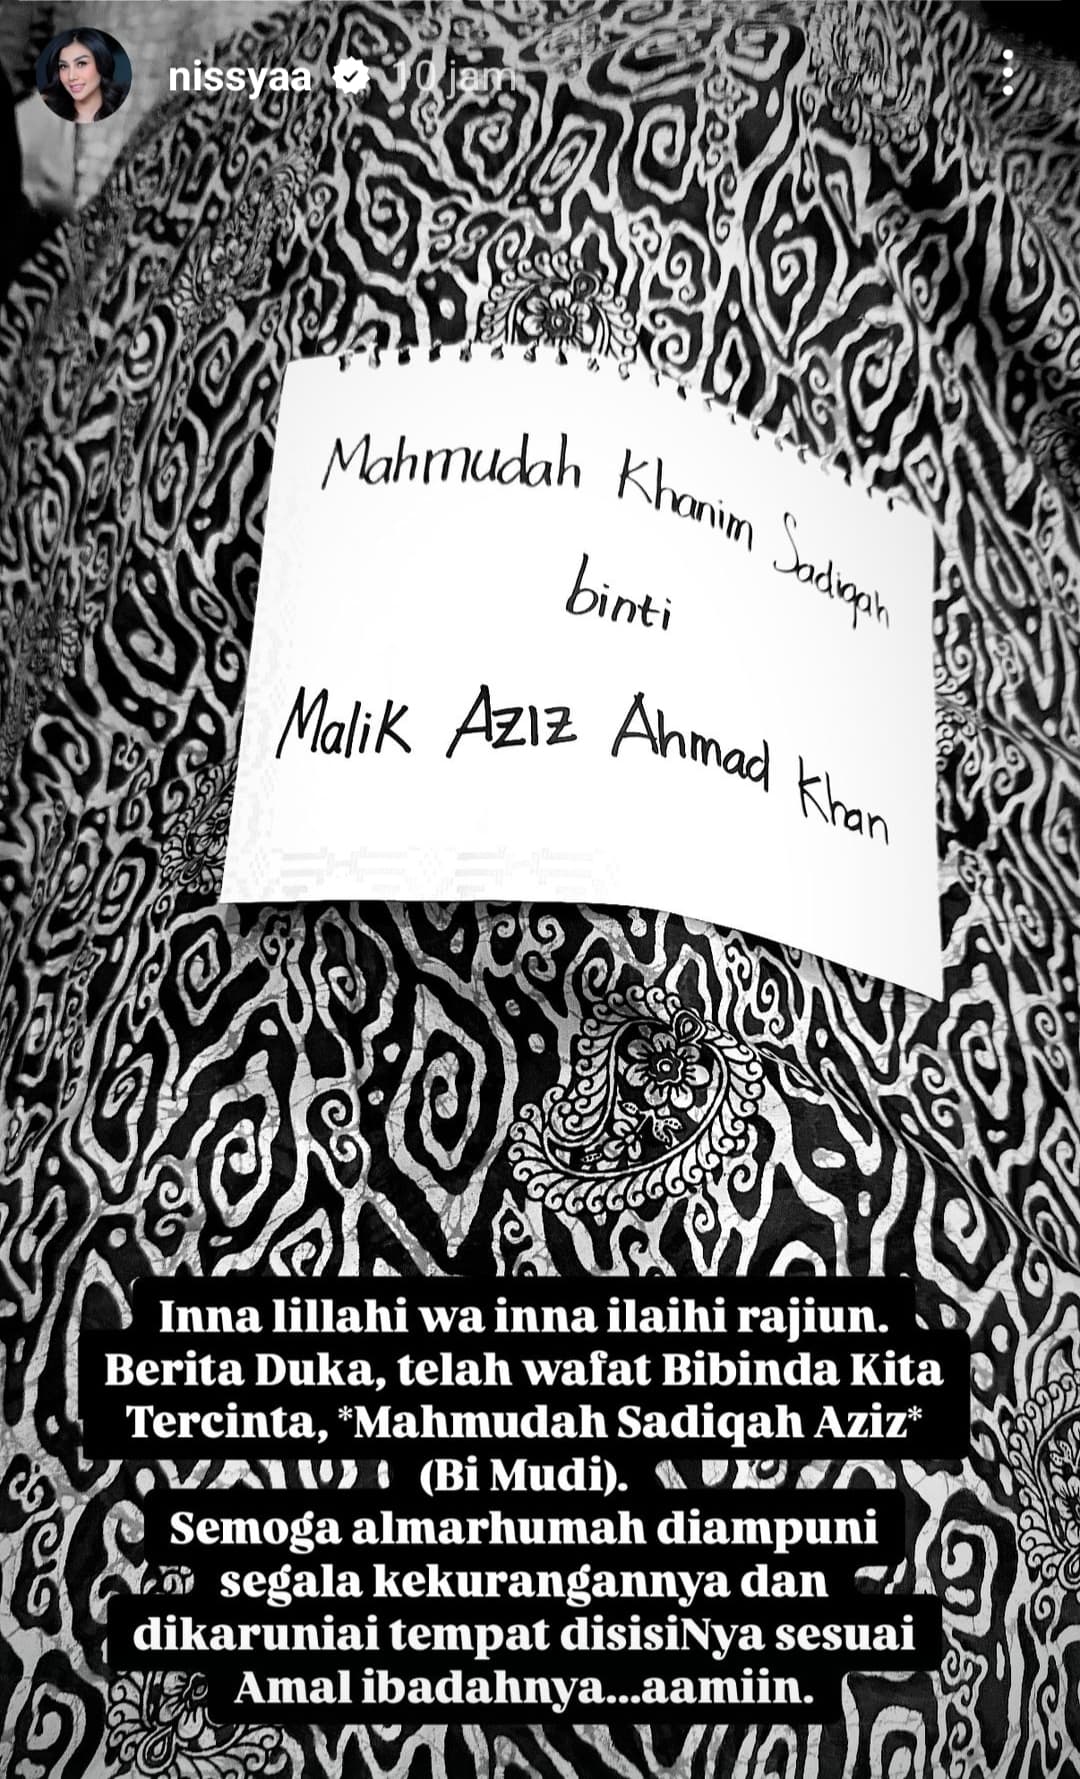 nissyaa 10 jam
Mahmudah Khanim Sadiqah
binti
Malik Aziz Ahmad Khan
Inna lillahi wa inna ilaihi rajiun.
Berita Duka, telah wafat Bibinda Kita
Tercinta, *Mahmudah Sadiqah Aziz*
(Bi Mudi).
Semoga almarhumah diampuni
segala kekurangannya dan
dikaruniai tempat disisiNya sesuai
Amal ibadahnya...aamiin.